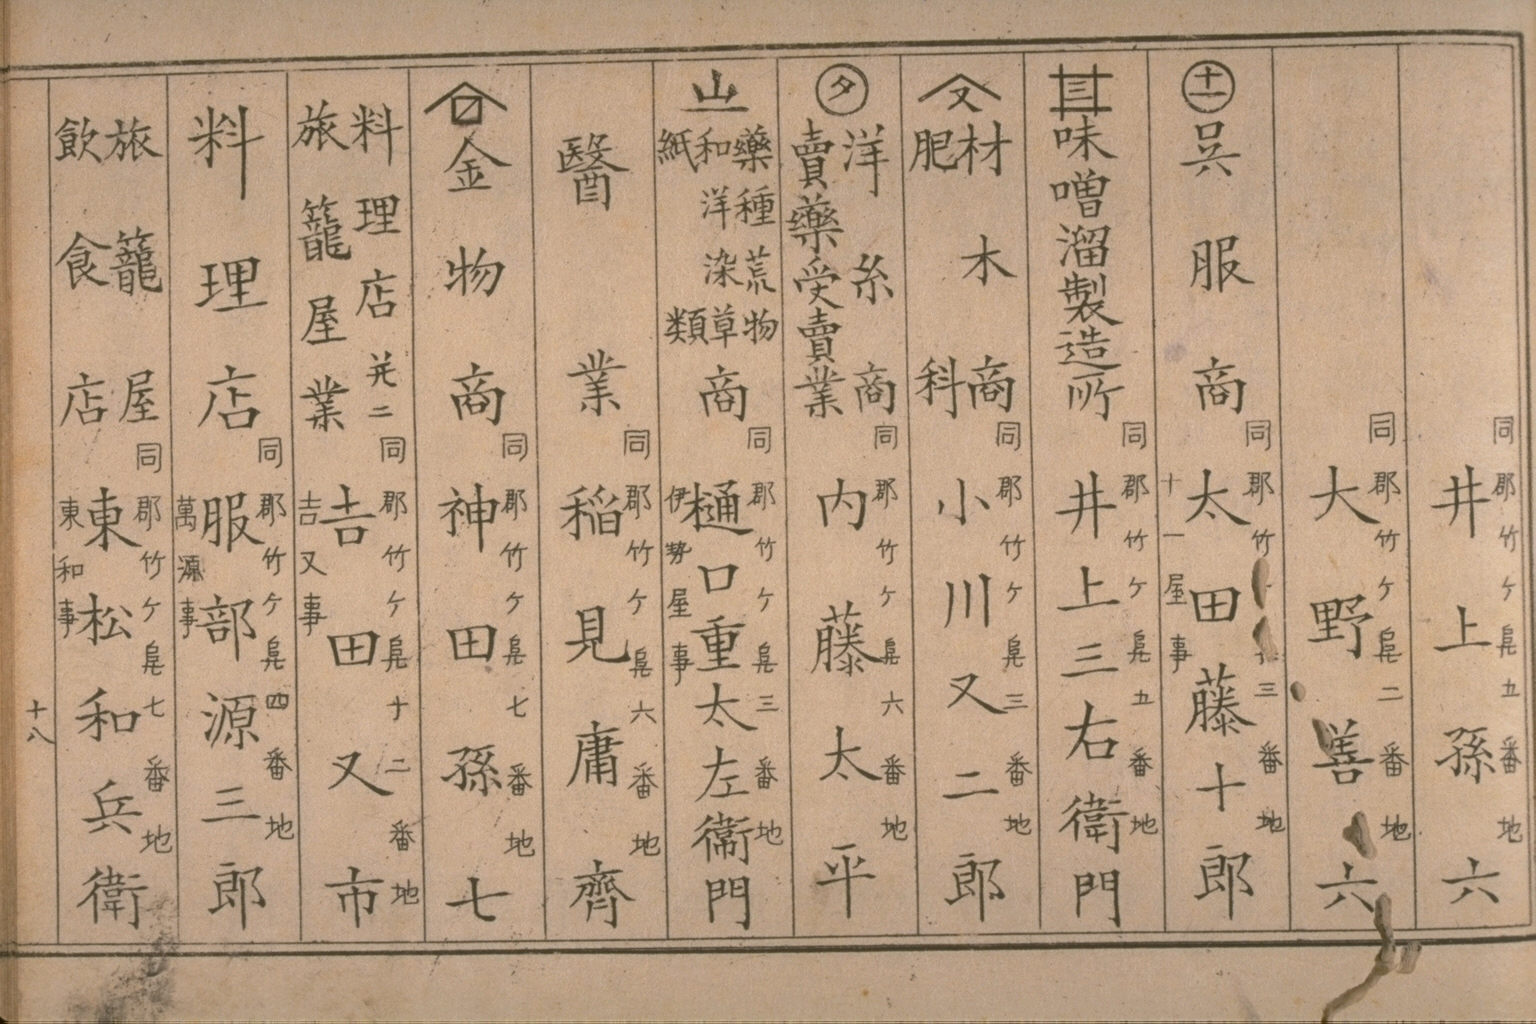 同郡竹ケ鼻五番地
井上孫六
同郡竹ケ鼻二番地
大野善六
十一
呉服商
同郡竹 三番地
太田藤十郎
十一屋事
味噌溜製造所
同郡竹ケ鼻五番地
井上三右衛門
又
材木商
肥料
同郡竹ケ鼻三番地
小川又二郎
タ
洋糸商
賣藥受賣業
同郡竹ケ鼻六番地
内藤太平
山一
藥種荒物
和洋染草
紙類
商
同郡竹ケ鼻三番地
樋口重太左衛門
伊勢屋事
醫業
同郡竹ケ鼻六番地
稲見庸齊
金物商
同郡竹ケ鼻七番地
神田孫七
料理店并ニ
旅籠屋業
同郡竹ケ鼻十二番地
吉田又市
吉又事
料理店
同郡竹ケ鼻四番地
服部源三郎
萬源事
旅籠屋
飲食店
同郡竹ケ鼻七番地
東松和兵衛
東和事
十八